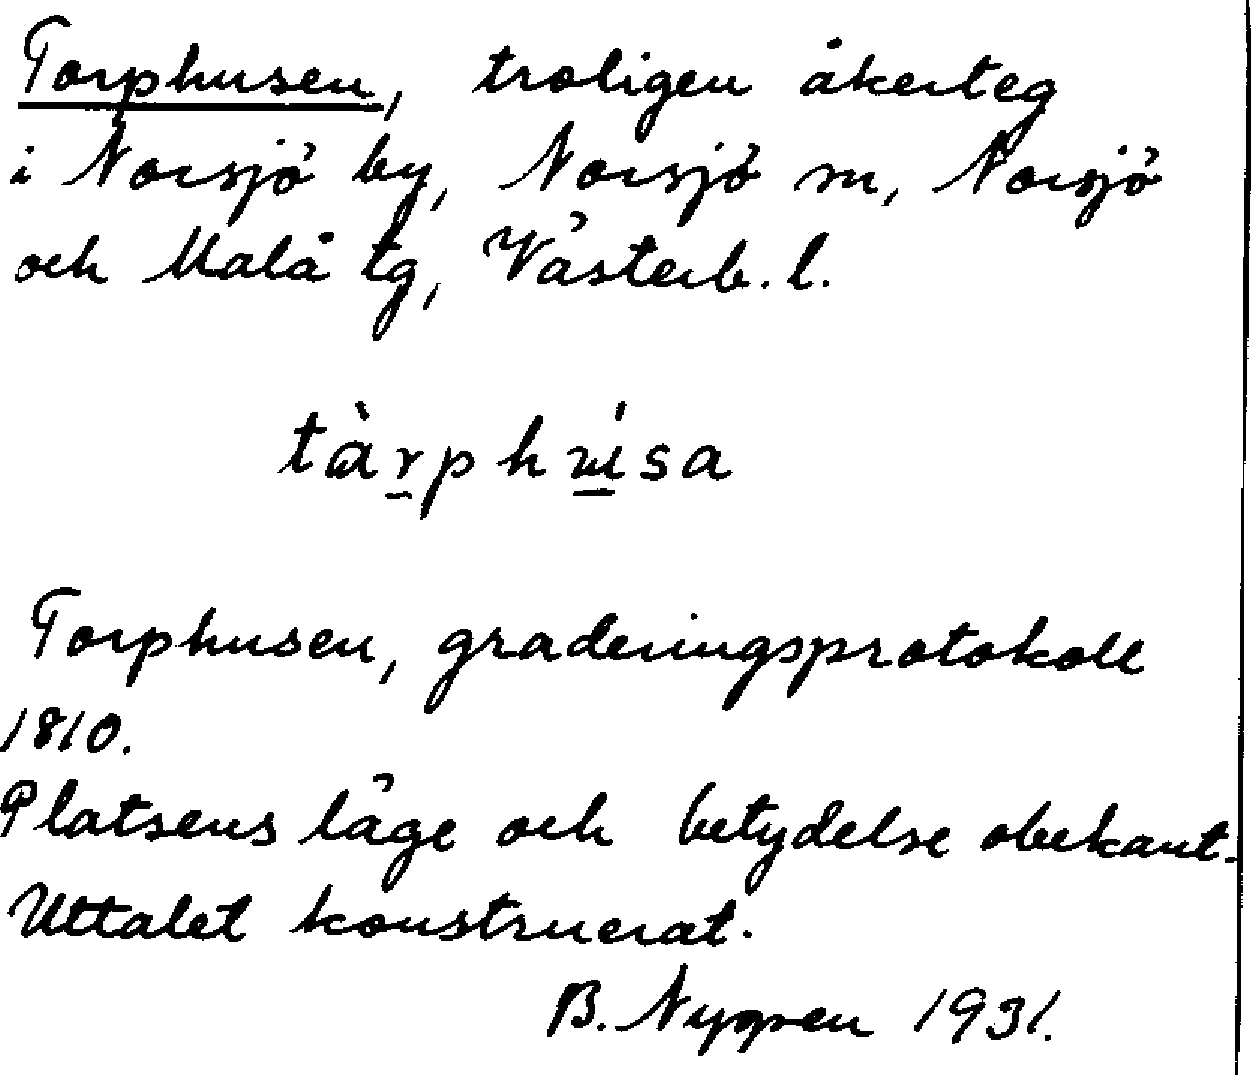 Torphusen, troligen åkerteg
i Norsjö by, Norsjö sn, Norsjö
och Malå tg, Västerb. l.
tàr̠phu̠ísa
Torphusen, graderingsprotokoll
1810.
Platsens läge och betydelse obekant.
Uttalet konstruerat.
B. Nygren 1931.